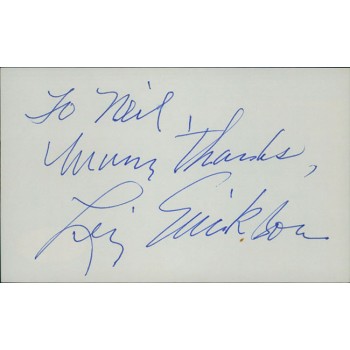 To Neil,
Many Thanks,
Leif Erickson